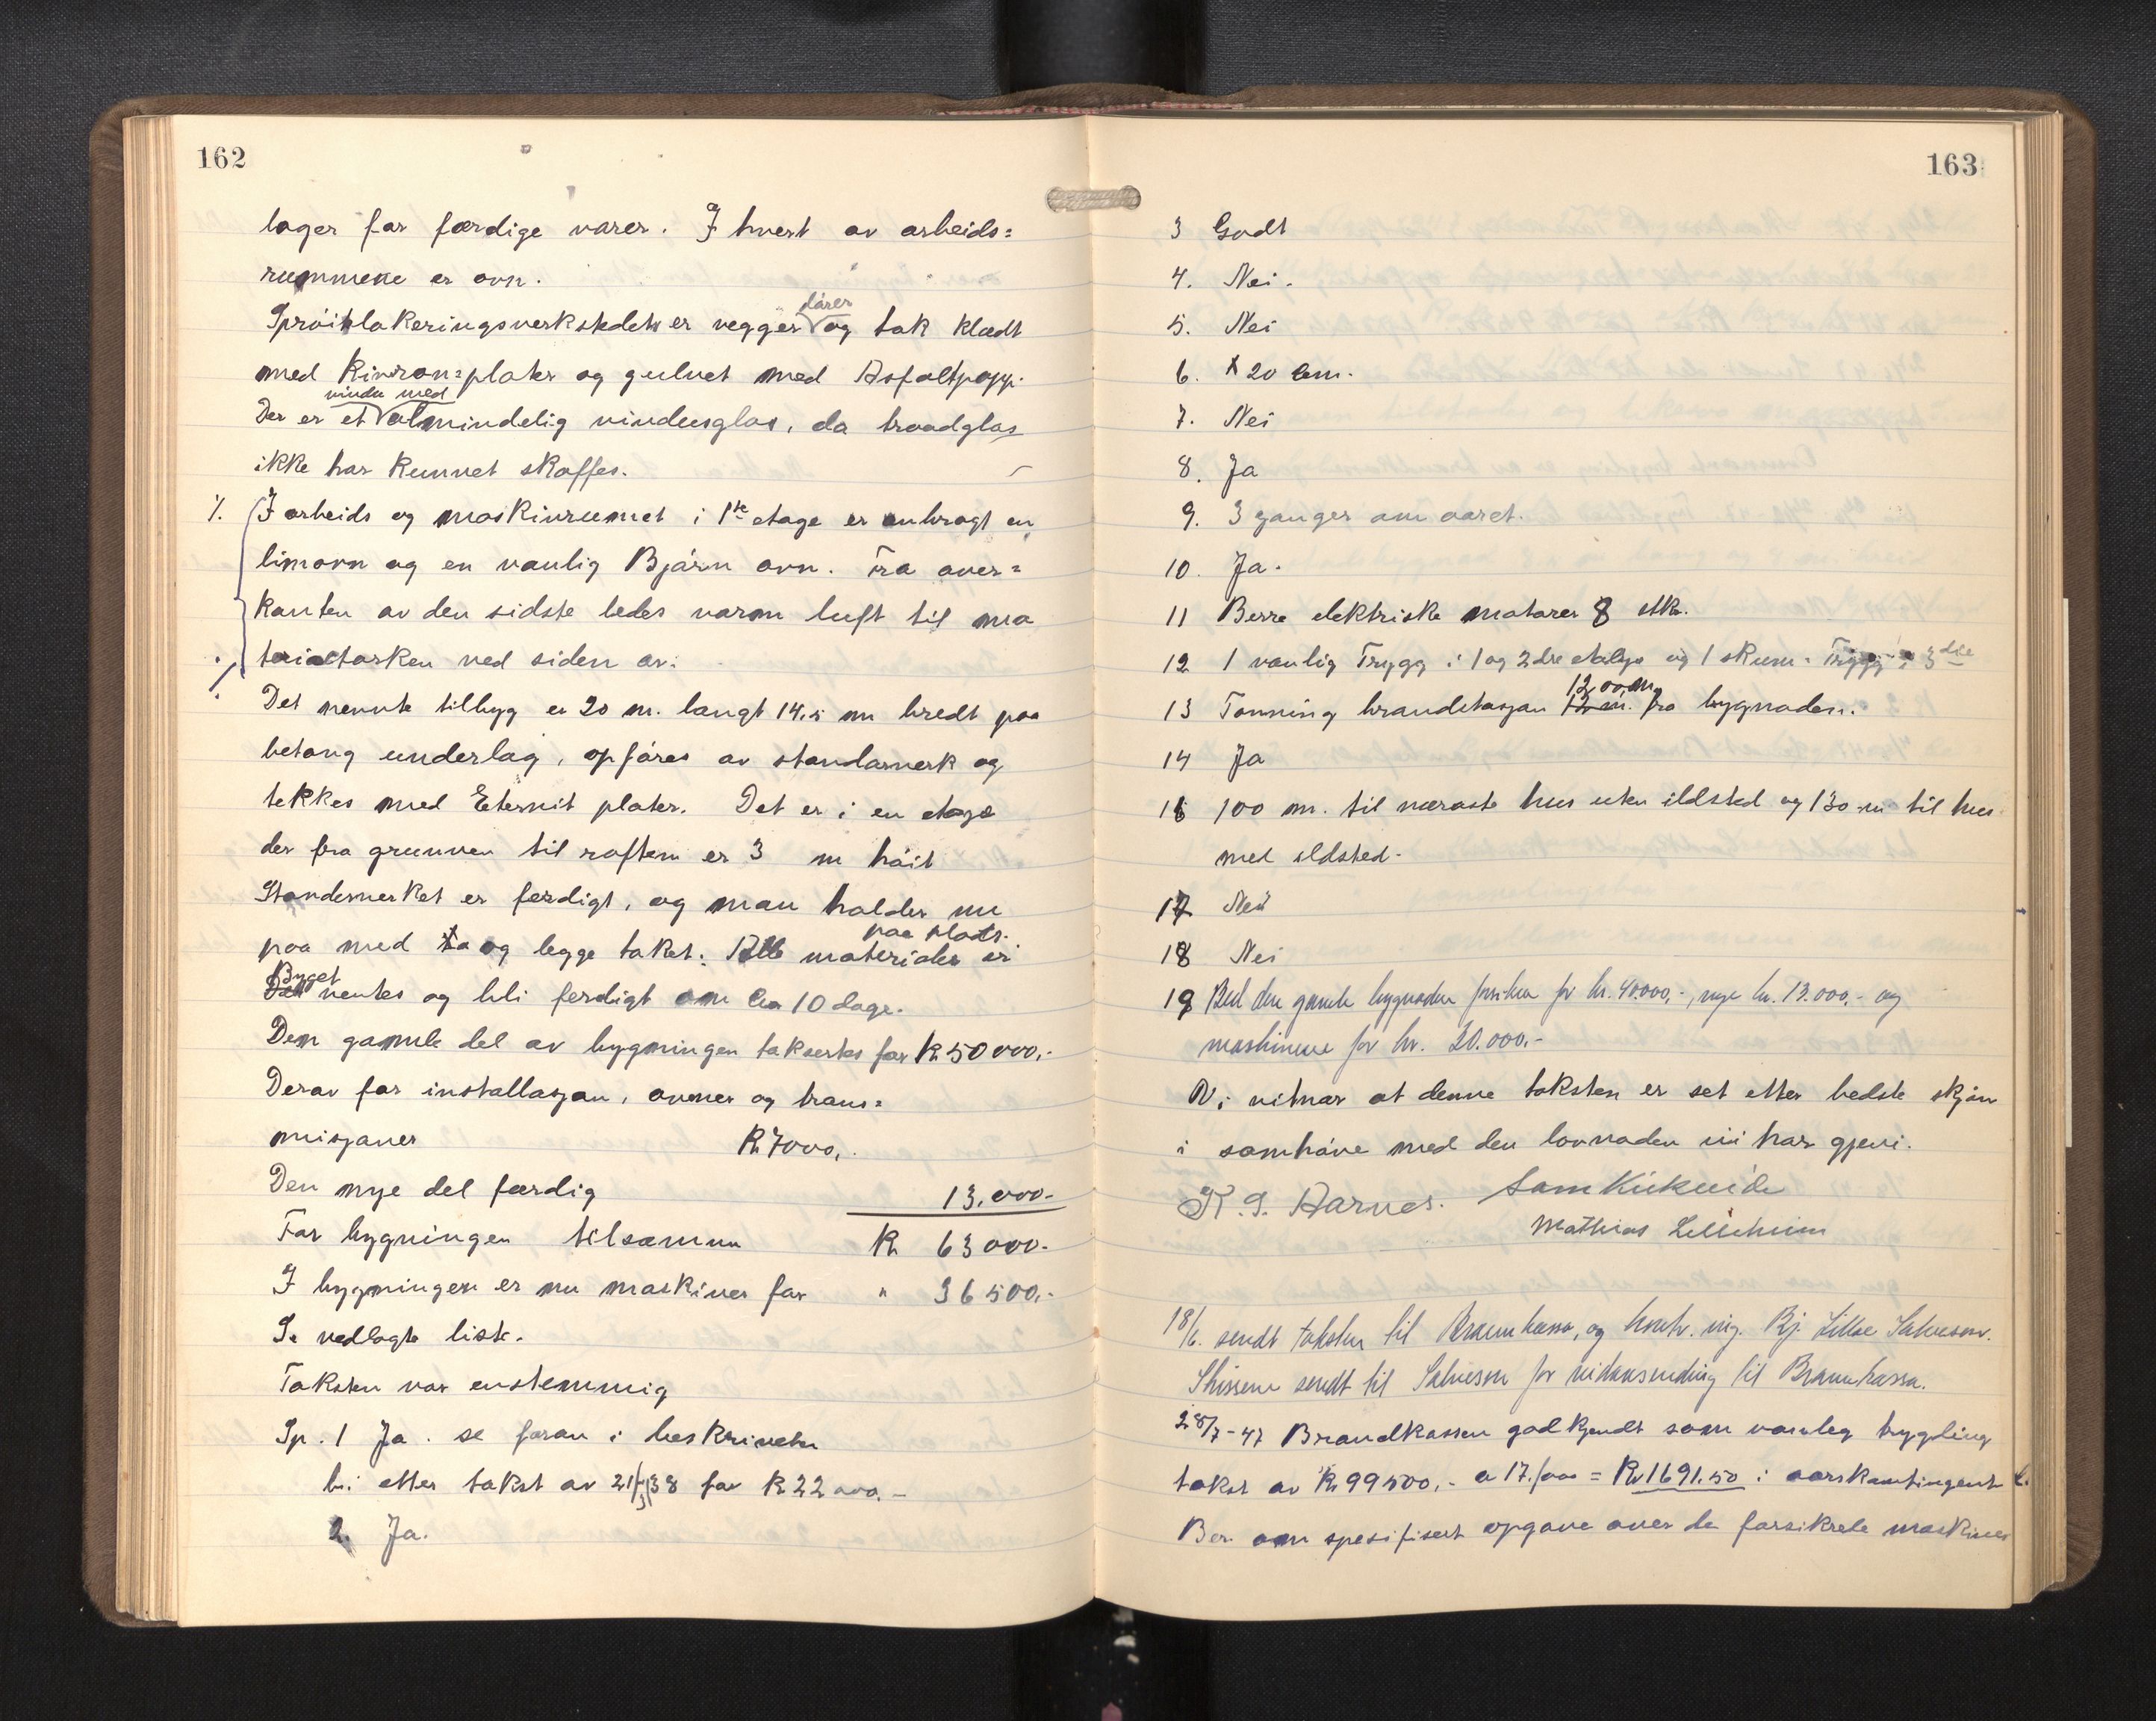 162
lager for færdige varer. I hvert av arbeids=
rummene er ovn.
Sprøitelakeringsverkstedet er vegger dører og tak klædt
med plater og gulvet med Asfaltpapp.
Der er et vindu med almindelig vindusglas, da traadglas
ikke har kunnet skaffes.
I arbeids og maskinrummet i 1ste etage er anbragt en
limovn og en vanlig Bjørn ovn. Fra over=
kanten av den sidste ledes varm luft til ma
terialtørken ved siden av.
Det nevnte tilbyg er 20 m. langt 14,5 m bredt paa
betong underlag, opføres av standarverk og
tekkes med Eternit plater. Det er i en etage
der fra grunnen til raften er 3 m høit
Standerverket er ferdigt, og man holder nu
paa med å legge taket. Alle materialer er paa plads.
Bygget ventes og bli ferdigt om ca 10 dage.
Den gamle del av bygningen takseres for Kr 50 000,-
Derav for installasjon, ovner og trans=
misjoner Kr 7000,-
Den nye del færdig 13,000-
For bygningen tilsammen Kr 63 000-
I bygningen er nu maskiner for " 36 500,-
Se vedlagte liste.
Taksten var enstemmig
Sp. 1 Ja. se foran i beskrivelsen
b: etter takst av 21/3 38 for Kr 22 000.-
2. Ja.
163
3 Godt
4. Nei.
5. Nei
6. 20 cm.
7. Nei
8. Ja
9. 3 ganger om aaret.
10. Ja.
11 Berre elektriske motorer 8 stk.
12 1 vanlig Trygg i 1 og 2dre etasje og 1 skum-Trygg i 3die
13 Tonning brandstasjon 1200 m. fra bygnaden.
14 Ja
16 100 m. til næraste hus uten ildsted og 130 m til hus
med ildsted.
17 Nei
18 Nei
19 den gamle bygnaden for kr. 40.000,-, nye kr. 13.000,- og
maskinene for kr. 20.000.-
Vi vitnar at denne taksten er set etter bedste skjøn
i samhøve med den lovnaden vi har gjevi.
K. S. Aarnes.
Mathias Lilleheim
18/6. sendt taksten til Brannkassa, og ing. Bj. Lillø Salveson.
Skissene sendt til Salveson for vidaresending til Brannkassa.
28/7-47 Brandkassen godkjendt som vanleg bygding
takst av Kr 99500,- a 17.⁰/₀₀ = Kr 1691.50 i aarskontingent
Ber om spesifisert opgave over de forsikrede maskiner